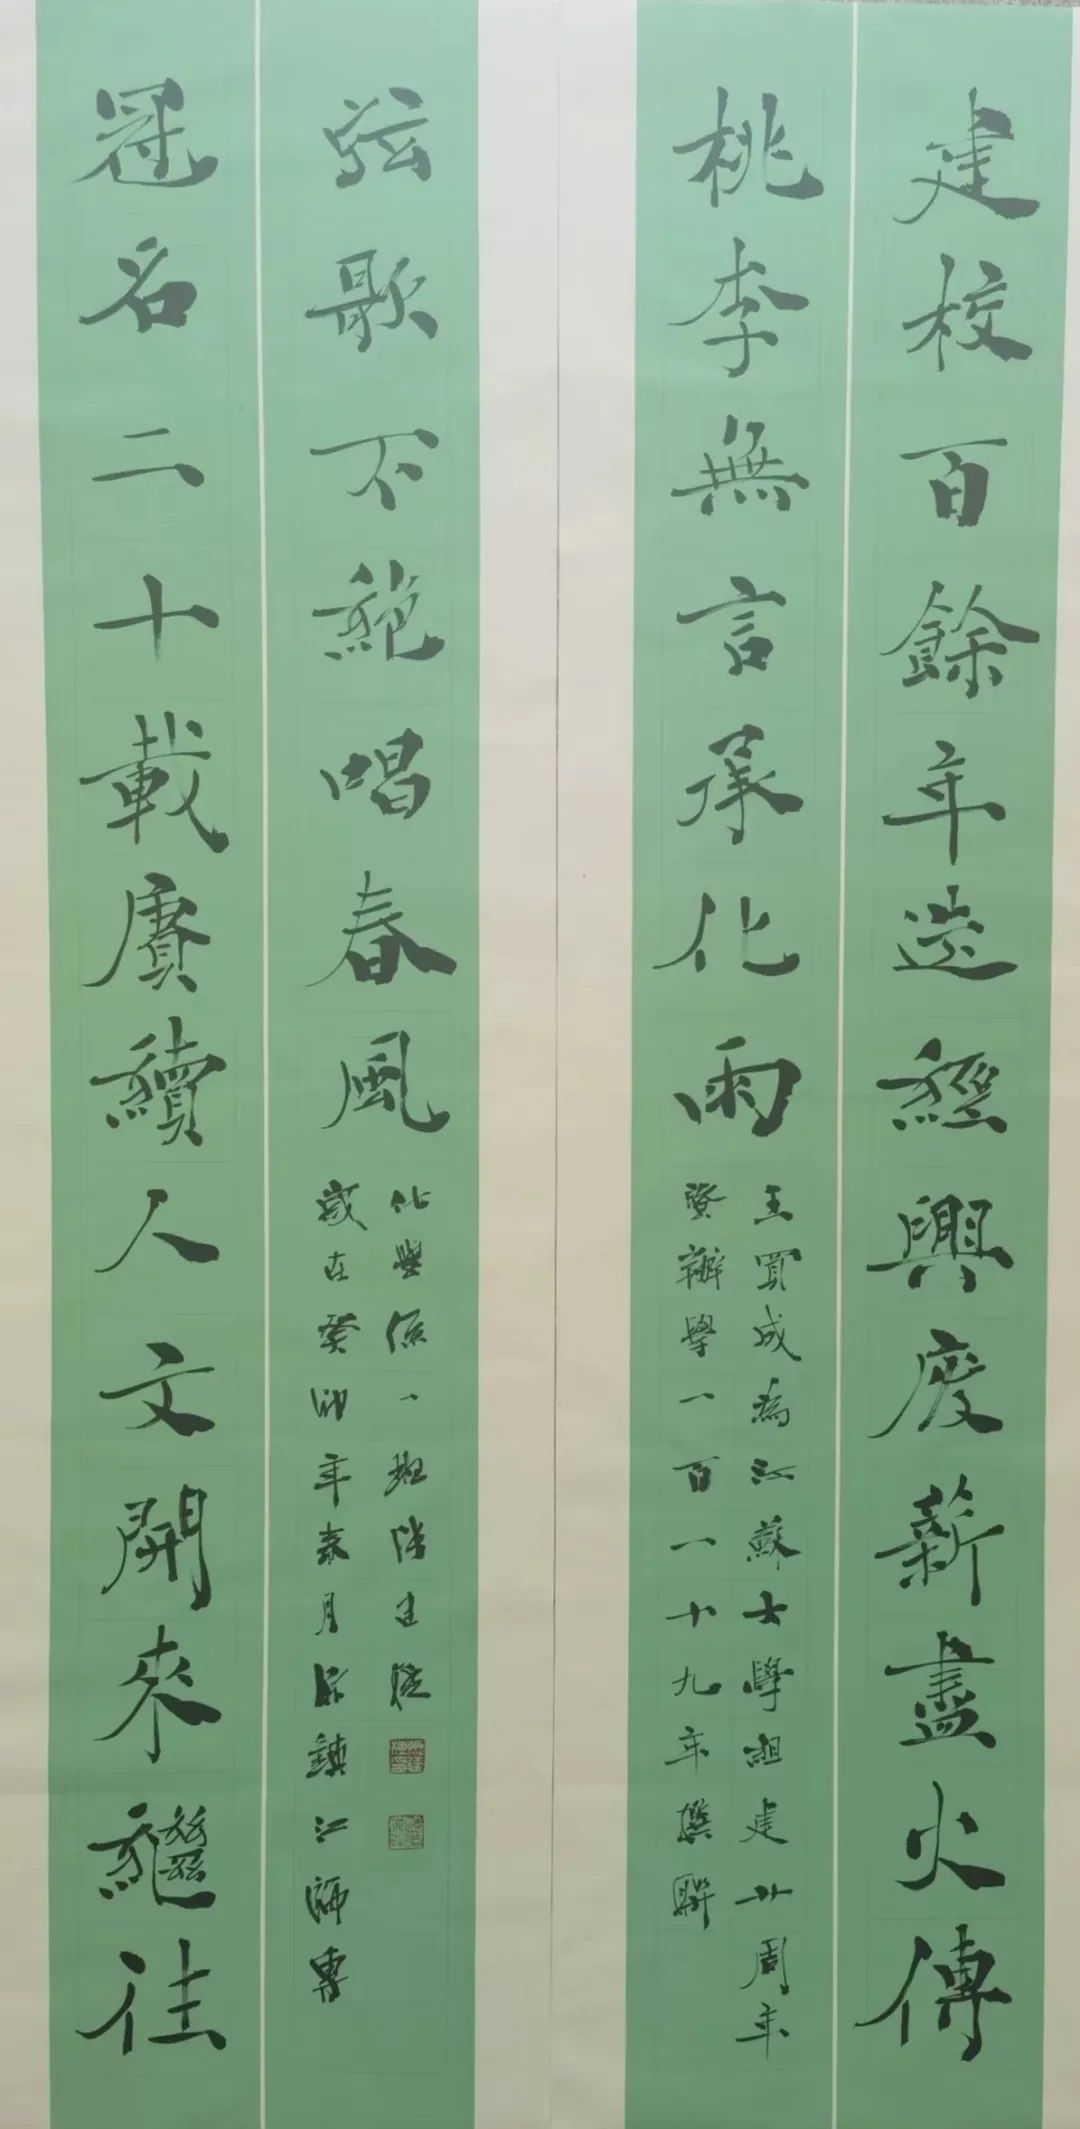 建校百餘年迭經興廢薪盡火傳
桃李無言承化雨
王成為江蘇大學組建廿周年
暨辦學一百一十九年撰聯
冠名二十載賡續人文開來繼往
弦歌不絕唱春風
歲在癸卯年春月原鎮江師專
化學係一班陳建